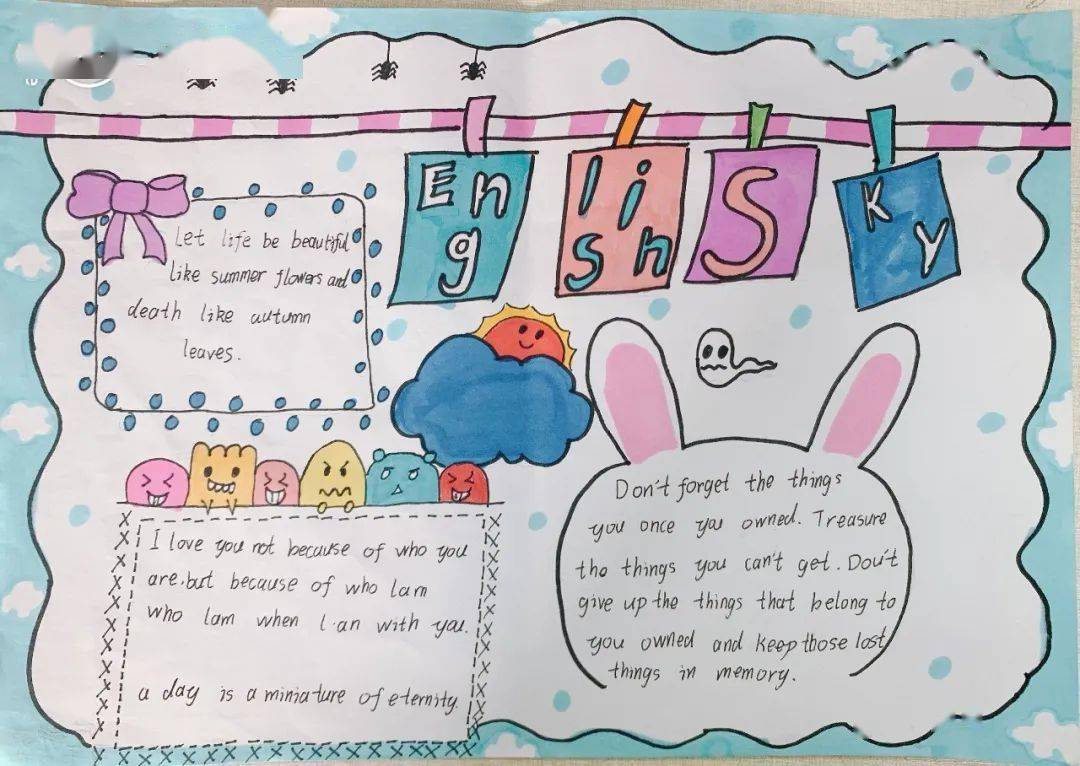 En
g
li
sh
S
K
y
Let life be beautiful
like summer flowers and
death like autumn
leaves.
I love you not because of who you
are.but because of who lam
who lam when l.an with you.
a day is a miniature of eternity.
Don't forget the things
you once you owned. Treasure
tho things you can't get. Dou't
give up the things that belong to
you owned and keep those lost
things in memory.